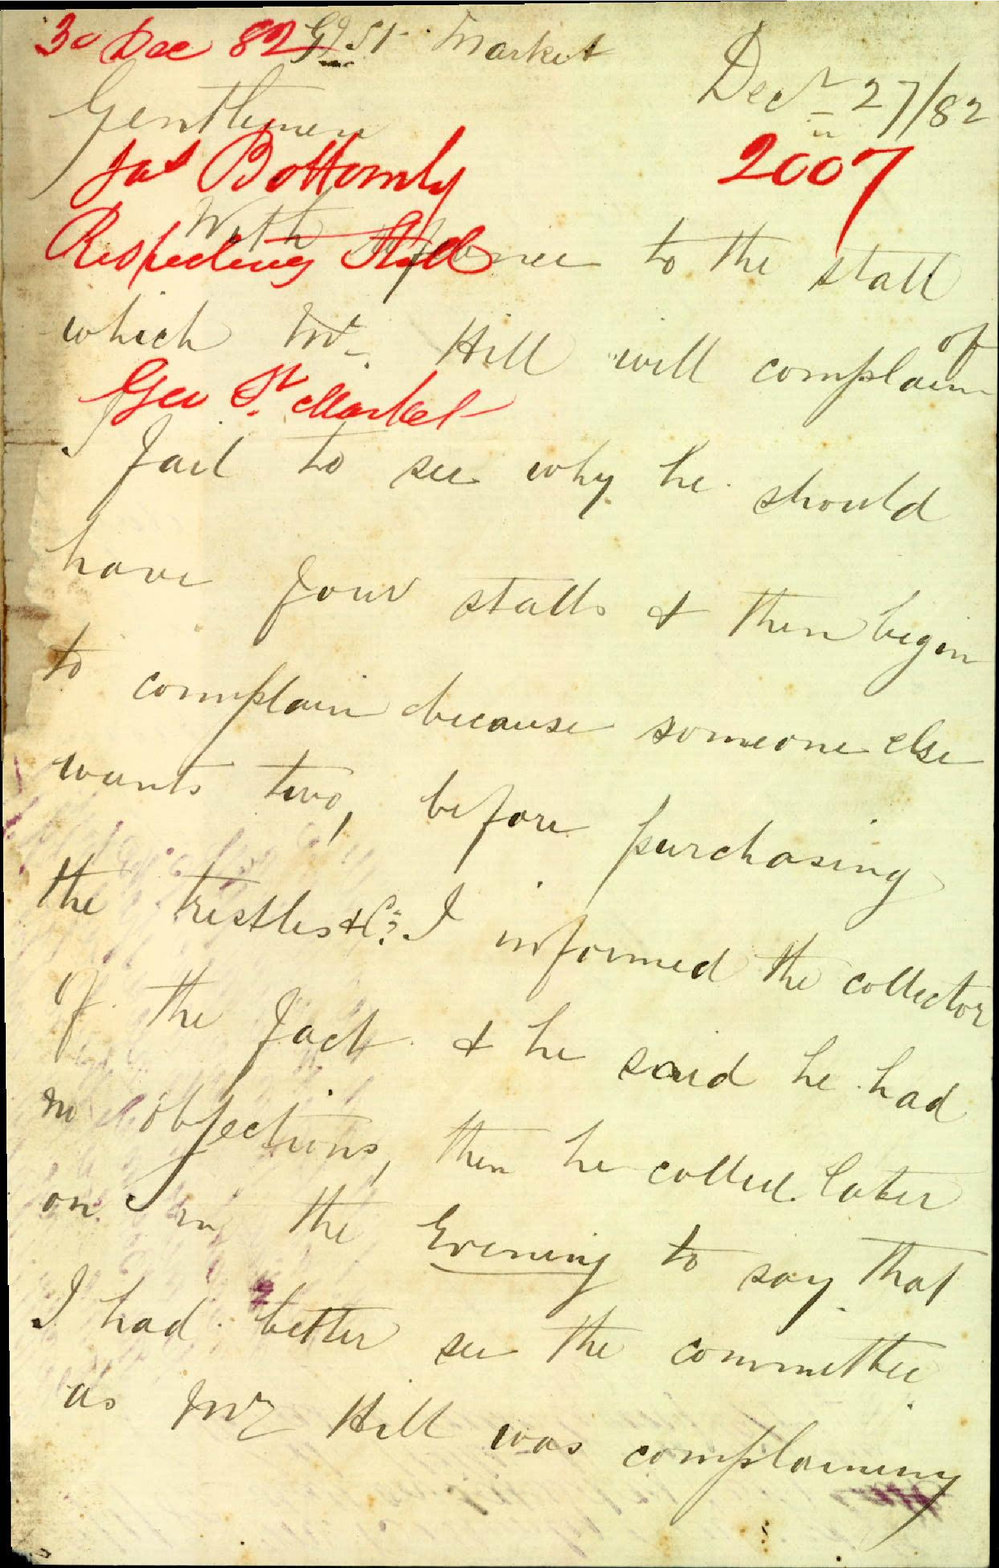 30 Dec 82
Geo St Market
Decr 27/82
Gentlymen
Jas Bottomly
2007
With refference to the stall
Respecting Stall
which Mr Hill will complain of
Geo St. Market
I fail to see why he should
have four stalls & then begin
to complain because someone else
wants two, before purchasing
the trestles &c. I informed the collector
of the fact & he said he had
no objections, then he called later
on in the Evening to say that
I had better see the committee
as Mr Hill was complaining